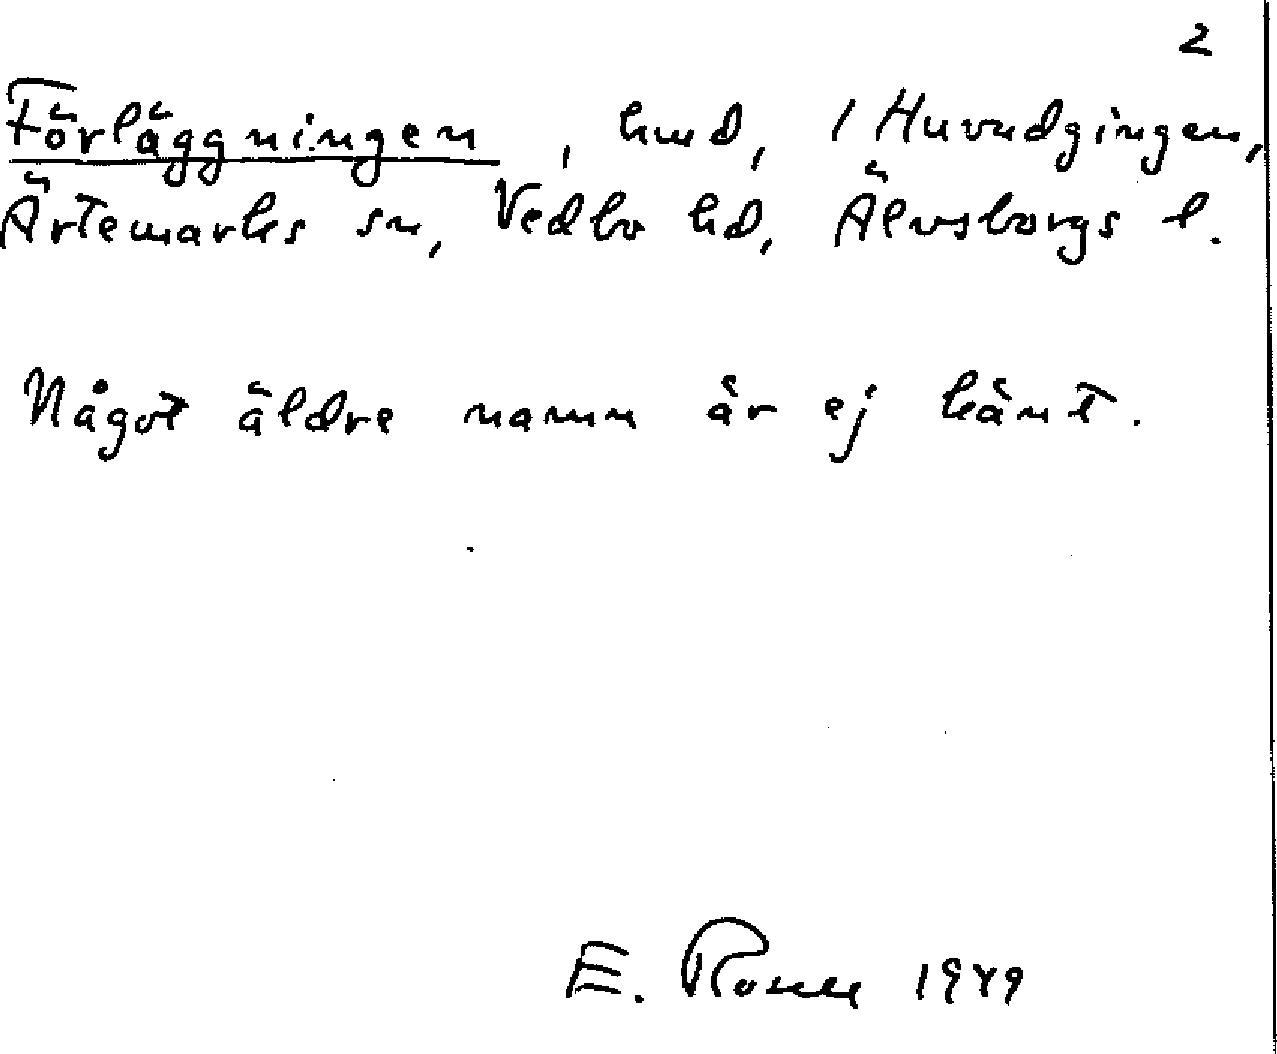 2
Förläggningen, hmd, / Huvudgingen,
Ärtemarks sn, Vedbo hd, Älvsborgs l.
Något äldre namn är ej känt.
E. 1949